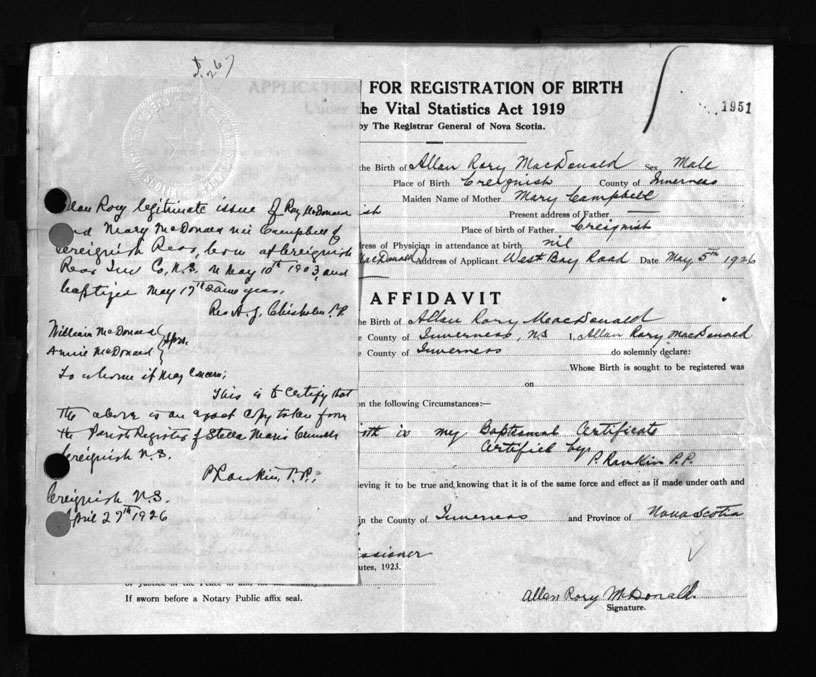 P. 267
APPLICATION FOR REGISTRATION OF BIRTH
Under the Vital Statistics Act 1919
by The Registrar General of Nova Scotia.
1951
the Birth of Allan Rory MacDonald Sex Male
Place of Birth Creignish County of Inverness
ish Maiden Name of Mother Mary Campbell
Present address of Father —
Place of birth of Father Creignish
ress of Physician in attendance at birth nil
MacDonald Address of Applicant West Bay Road Date May 5th 1926
AFFIDAVIT
e Birth of Allan Rory MacDonald
e County of Inverness, N.S I, Allan Rory MacDonald
e County of Inverness do solemnly declare:
Whose Birth is sought to be registered was
on
on the following Circumstances:—
is my Baptismal Certificate
Certified by
P. Rankin P.P.
eving it to be true and knowing that it is of the same force and effect as if made under oath and
in the County of Inverness and Province of Nova Scotia
issioner
utes, 1923.
of Justice of the Peace in and for the County
If sworn before a Notary Public affix seal.
Allan Rory McDonald.
Signature.
lan Rory legitimate issue of Roy McDonald
and Mary McDonald nee Campbell of
Creignish Rear, born at Creignish
Rear Inv Co, N.S. on May 10th 1903, and
baptized May 17th same year.
Rev A. J. Chisholm P.P.
William McDonald
Annie McDonald } Spon.
To whome it may Concern;
This is to Certify that
the above is an exact copy taken from
the Parish Register of Stella Maris Church
Creignish N.S.
P Rankin, P.P.;
Creignish N.S.
April 27th 1926